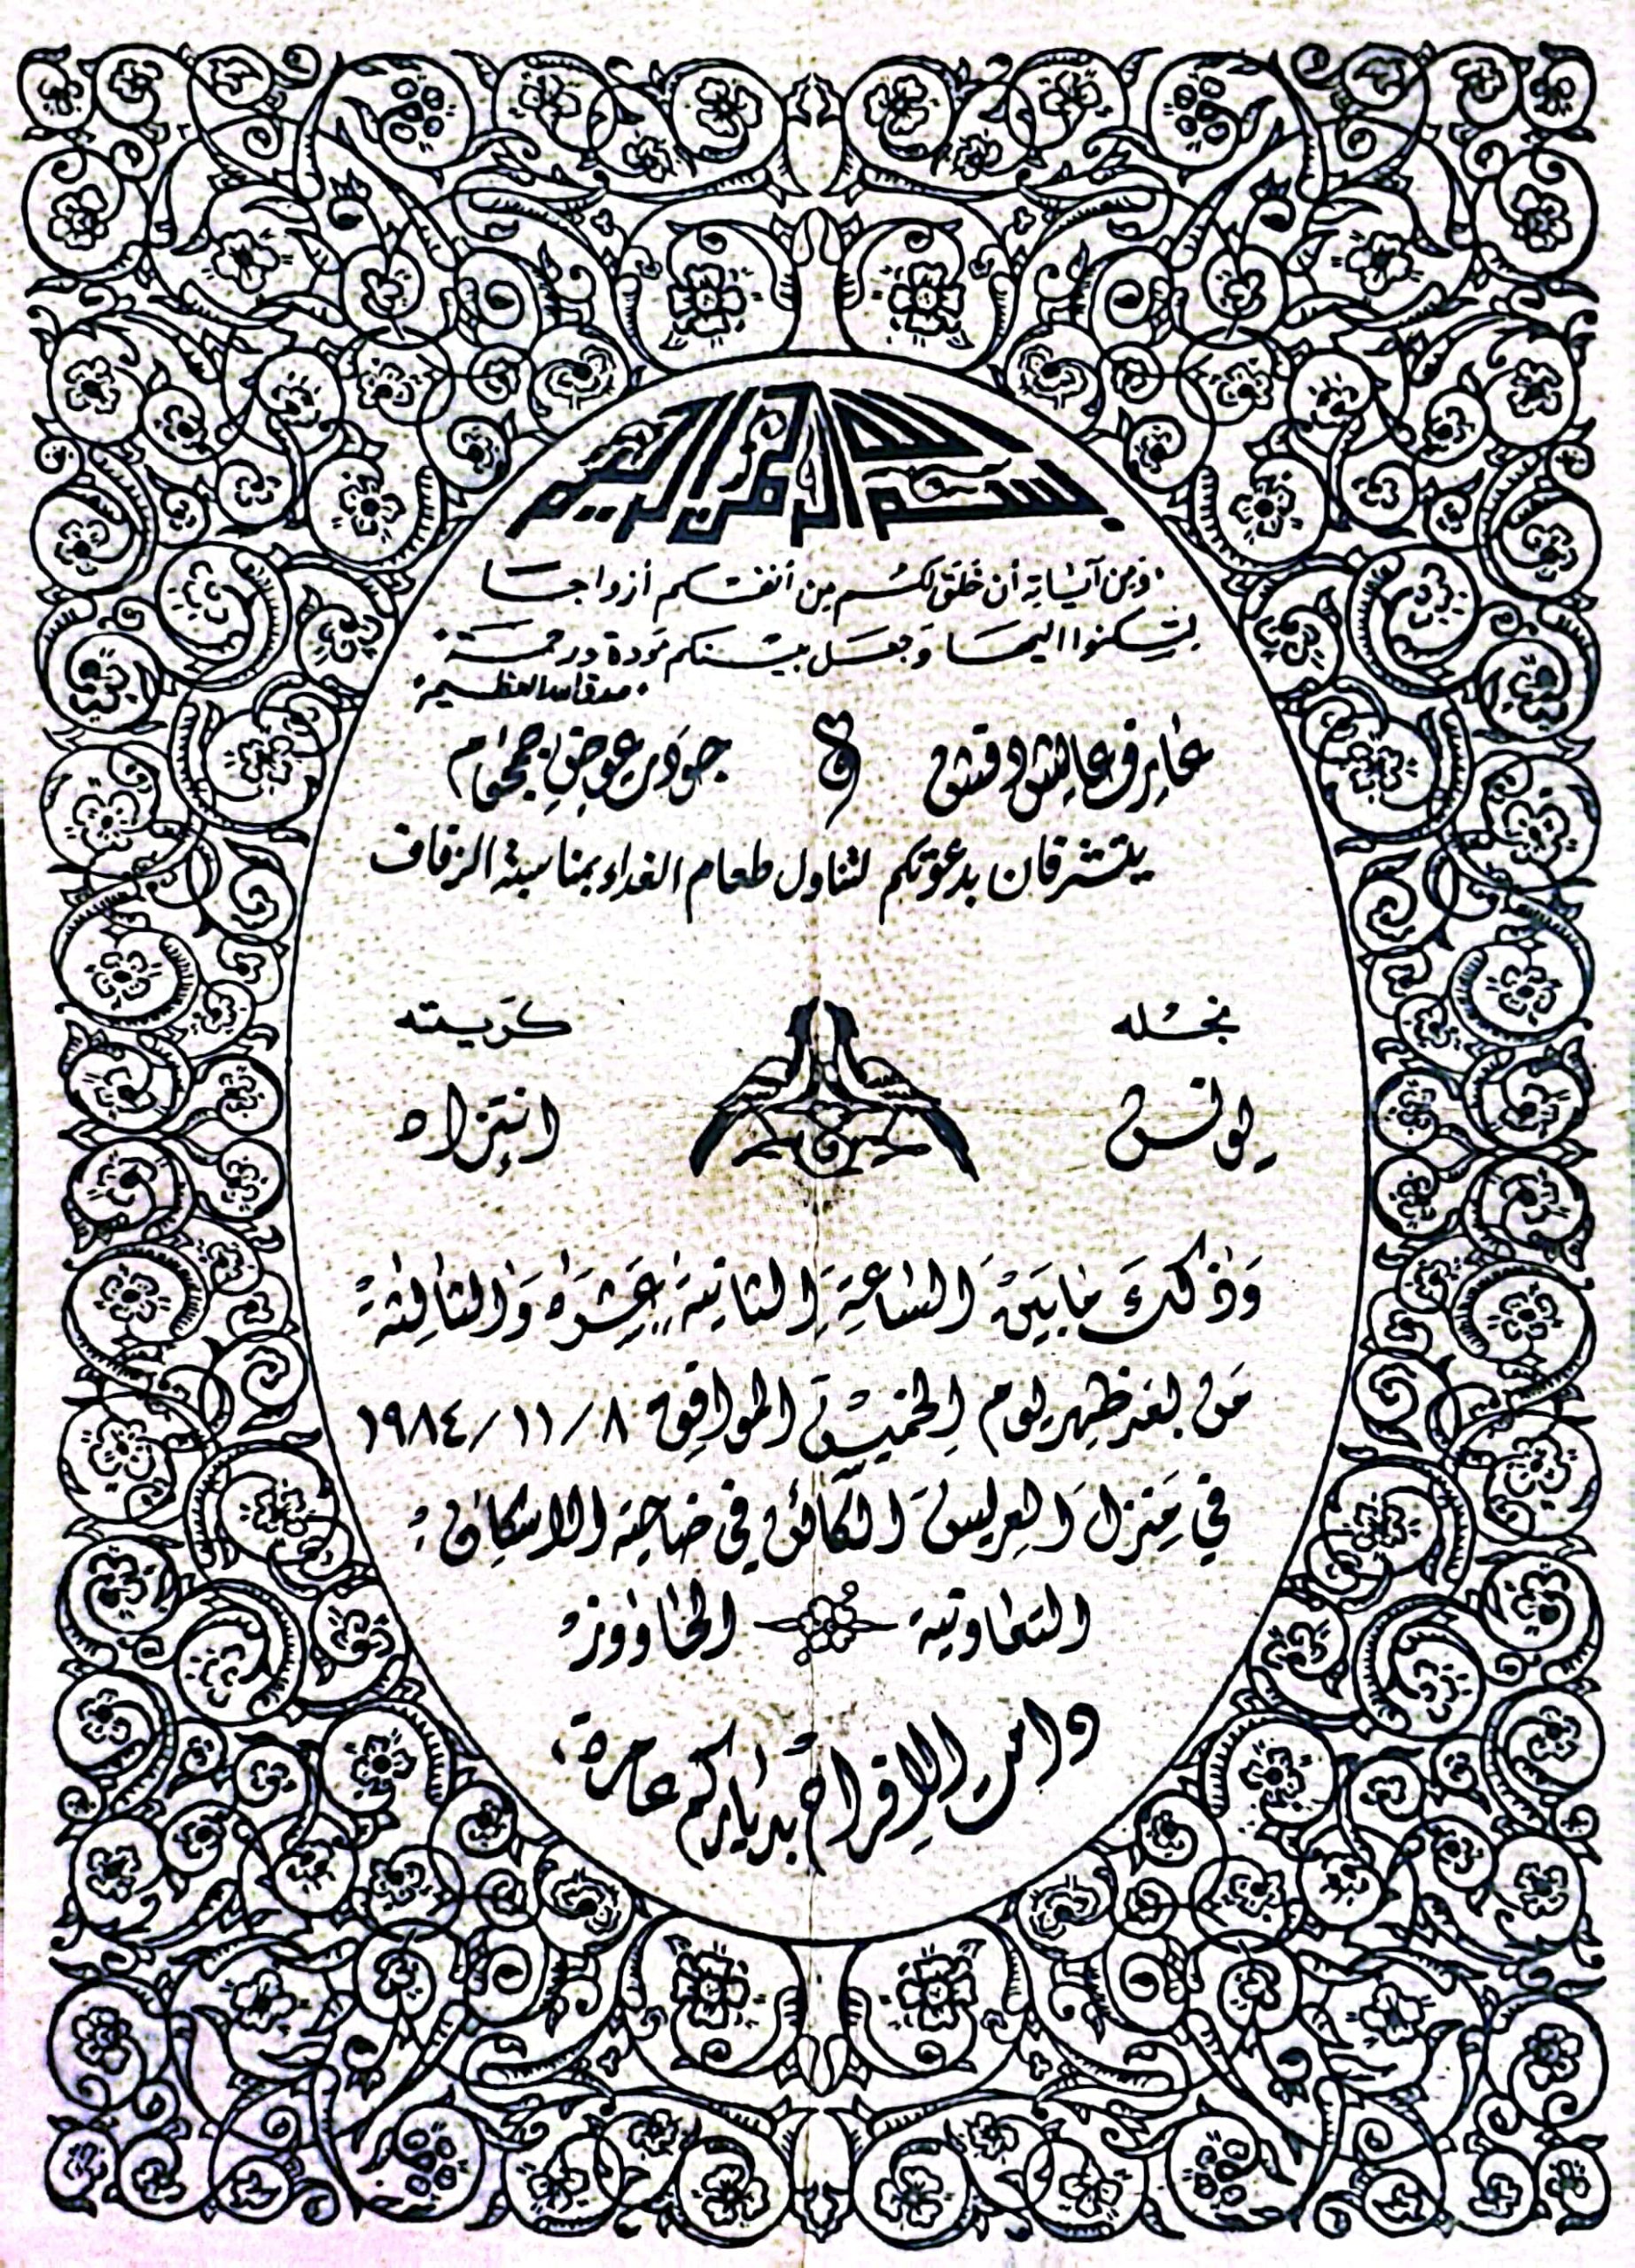 بسم الله الرحمن الرحيم
"ومن آياته أن خلق لكم من أنفسكم أزواجا
لتسكنوا إليها وجعل بينكم مودة ورحمة"
"صدق الله العظيم"
عارف عايش دقش و جودر عوض جمحاوم
يتشرفان بدعوتكم لتناول طعام الغداء بمناسبة الزفاف
نجله كريمته
يونس انتزاه
وذلك ما بين الساعة الثانية عشرة والثالثة
من بعد ظهر يوم الخميس الموافق ٨/١١/١٩٨٤
في منزل العريس الكائن في ضاحية الاسكان
التعاونية الخاووز
ودامت الافراح بدياركم عامرة